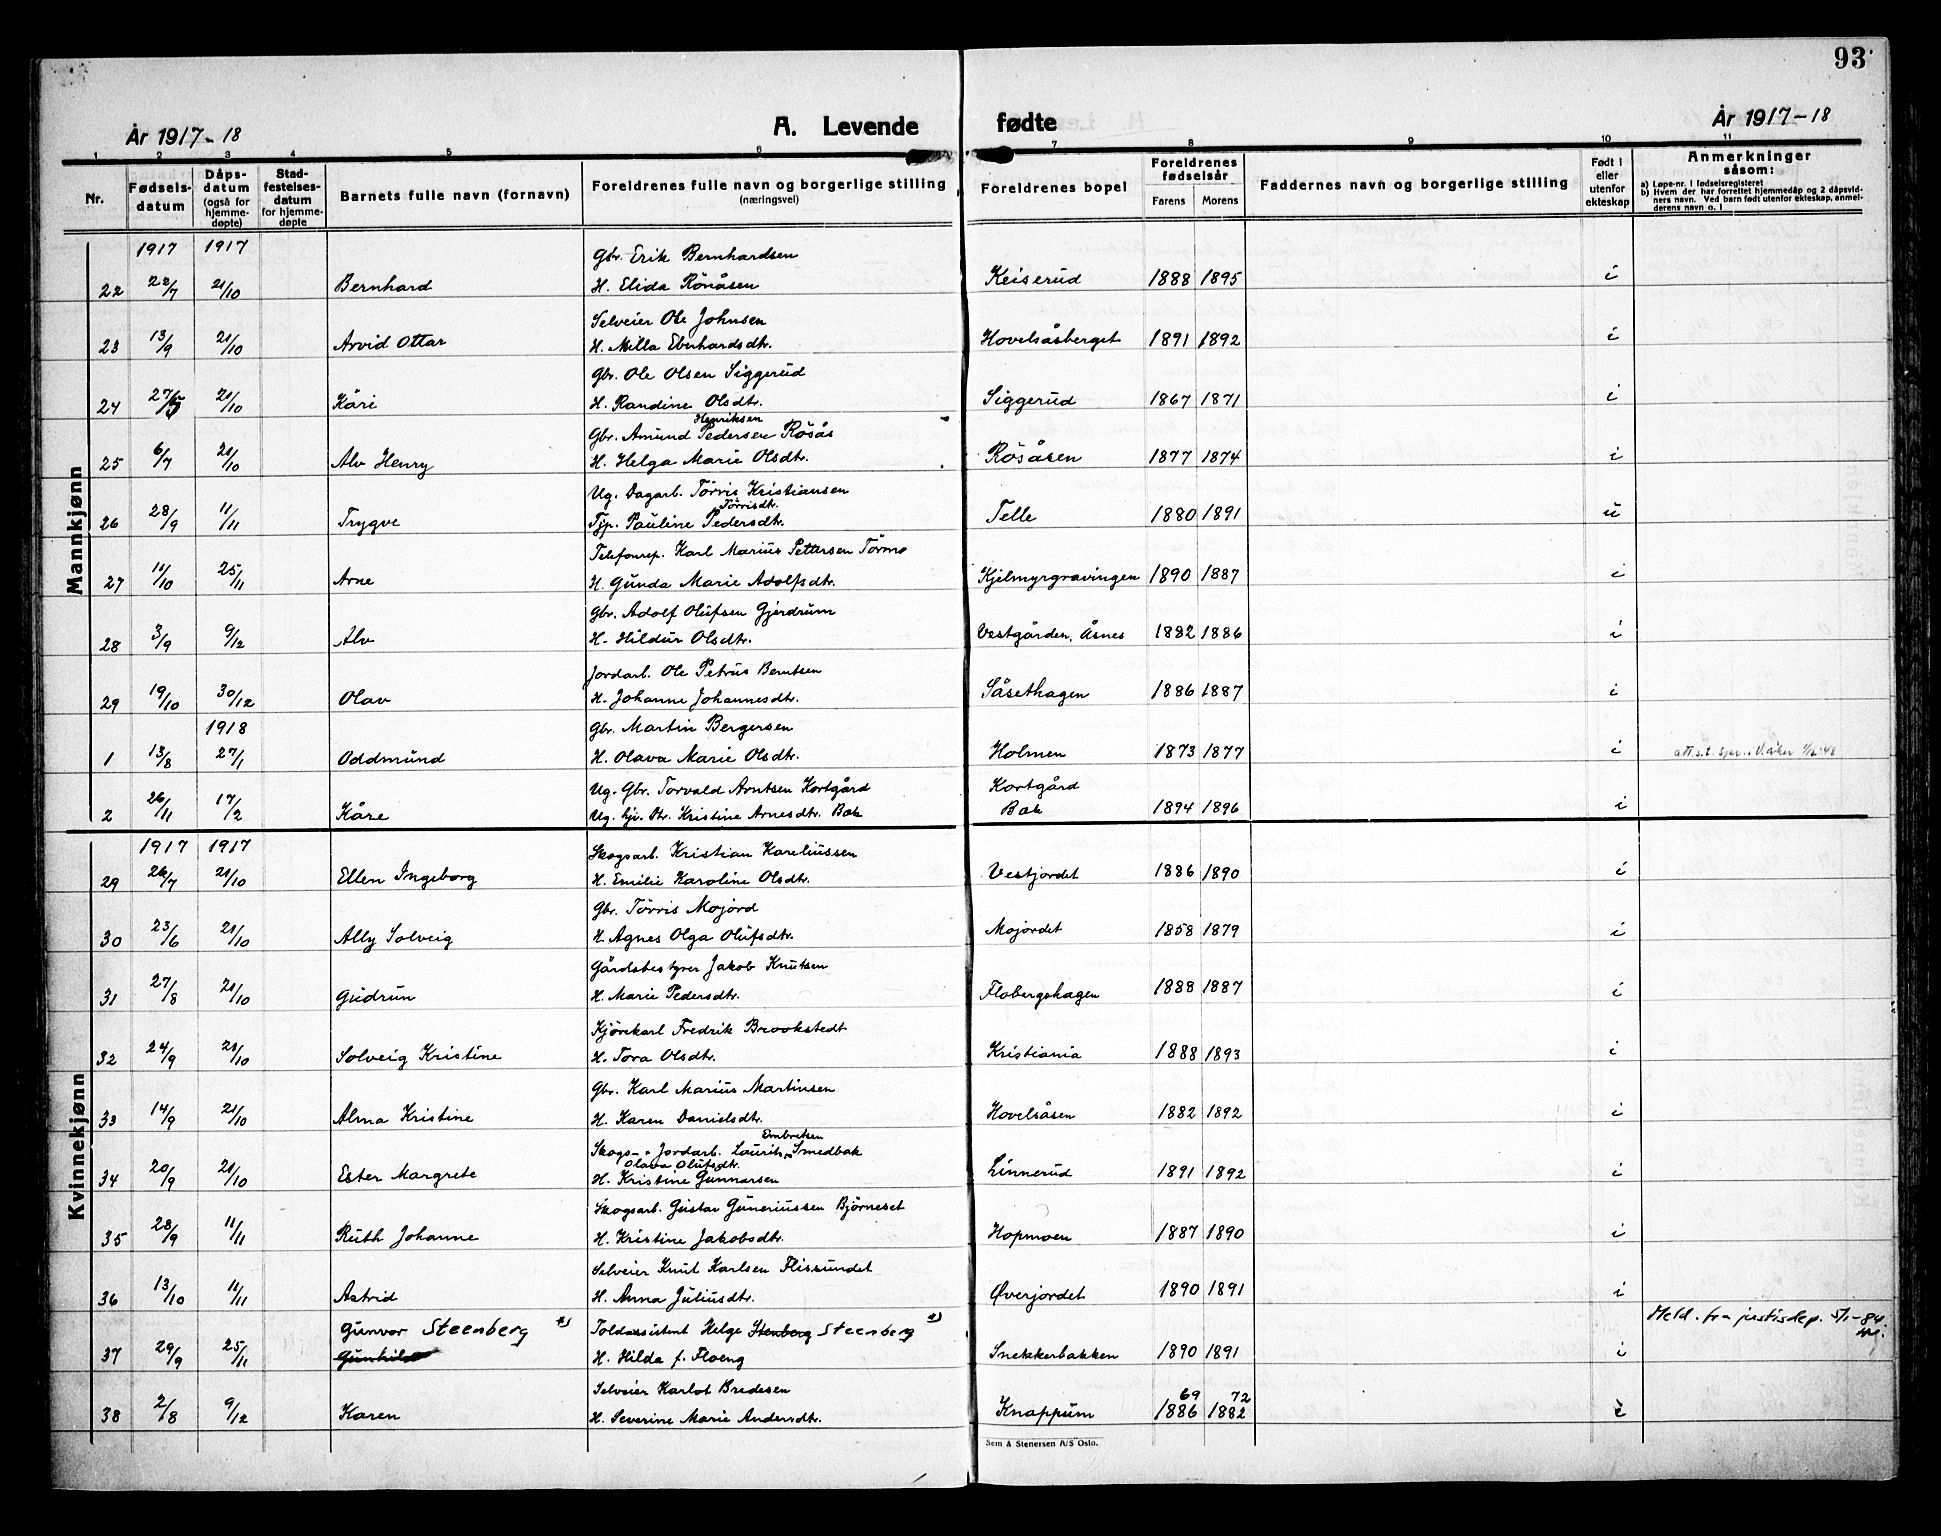 93
År 1917-18
A. Levende fødte
År 1917-18
1 2 3 4 5 6 7 8 9 10 11
Nr.
Fødsels-datum
Dåps-datum (også for hjemme-døpte)
Stad-festelses-datum for hjemme-døpte
Barnets fulle navn (fornavn)
Foreldrenes fulle navn og borgerlige stilling (næringsvei)
Foreldrenes bopel
Foreldrenes fødselsår
Farens Morens
Faddernes navn og borgerlige stilling
Født i eller utenfor ekteskap
Anmerkninger såsom:
a) Løpe-nr. i fødselsregisteret
b) Hvem der har forrettet hjemmedåp og 2 dåpsvid-
ners navn. Ved barn født utenfor ekteskap, anmel-
derens navn o. l
Mannkjønn
1917 1917 Gbr. Erik Bernhardsen
22 22/7 21/10 Bernhard H. Elida Rönåsen Keiserud 1888 1895 i
Selveier Ole Johnsen
23 13/9 21/10 Arvid Ottar H. Milla Eberhardsdtr. Hovelsåsberget 1891 1892 i
Gbr. Ole Olsen Siggerud
24 27/5 21/10 Kåri H. Randine Olsdtr. Siggerud 1867 1871 i
Henriksen
Gbr. Amund Pedersen Rösås
25 6/7 21/10 Alv Henry H. Helga Marie Olsdtr. Rösåsen 1877 1874 i
Ug. Dagarb. Törris Kristiansen
Törrisdtr.
26 28/9 11/11 Trygve Tjp. Pauline Pedersdtr. Telle 1880 1891 u
Telefonrep. Karl Marius Pettersen Törmo
27 11/10 25/11 Arne H. Gunda Marie Adolfsdtr. Kjelmyrgravingen 1890 1887 i
Gbr. Adolf Olufsen Gjerdrum
28 3/9 9/12 Alv H. Hildur Olsdtr. Vestgården, Åsnes 1882 1886 i
Jordarb. Ole Petrus Berntsen
29 19/10 30/12 Olav H. Johanne Johannesdtr. Såsethagen 1886 1887 i
1918 Gbr. Martin Bergersen
1 13/8 27/1 Oddmund H. Olava Marie Olsdtr. Holmen 1873 1877 i
Ug. Gbr. Torvald Arntsen Kortgård Kortgård
2 26/11 17/2 Kåre Ug. hjv. Dtr. Kristine Arnesdtr. Bak Bak 1894 1896 i
Kvinnekjønn
1917 1917 Skogsarb. Kristian Kareliussen
29 26/7 21/10 Ellen Ingeborg H. Emilie Karoline Olsdtr. Vestjordet 1886 1890 i
Gbr. Törris Mojord
30 23/6 21/10 Ally Solveig H. Agnes Olga Olufsdtr. Mojordet 1858 1879 i
Gårdsbestyrer Jakob Knutsen
31 27/8 21/10 Gudrun H. Marie Pedersdtr. Flobergshagen 1888 1887 i
Kjörekarl Fredrik Brookstedt
32 24/9 21/10 Solveig Kristine H. Tora Olsdtr. Kristiania 1888 1893 i
Gbr. Karl Marius Martinsen
33 14/9 21/10 Alma Kristine H. Karen Danielsdtr. Hovelsåsen 1882 1892 i
Embretsen
Skogs- - Jordarb. Laurits Smedbak
Olava Olufsdtr.
34 20/9 21/10 Ester Margrete H. Kristine Gunnarsen Linnerud 1891 1892 i
Skogsarb. Gustav Guneriussen Björneset
35 28/9 11/11 Ruth Johanne H. Kristine Jakobsdtr. Hopmoen 1887 1890 i
Selveier Knut Karlsen Flissundet
36 13/10 11/11 Astrid H. Anna Juliusdtr. Øverjordet 1890 1891 i
Gunvor Steenberg *) Toldassistent Helge Stenberg Steenberg *) Meld. fra justisdep. 5/1-84.
37 29/9 25/11 Gunhild H. Hilda f. Floeng Snekkerbakken 1890 1891 i
Selveier Karlot Bredesen 69 72
38 2/8 9/12 Karen H. Severine Marie Andersdtr. Knappum 1886 1882 i
Sem & Stenersen A/S Oslo.